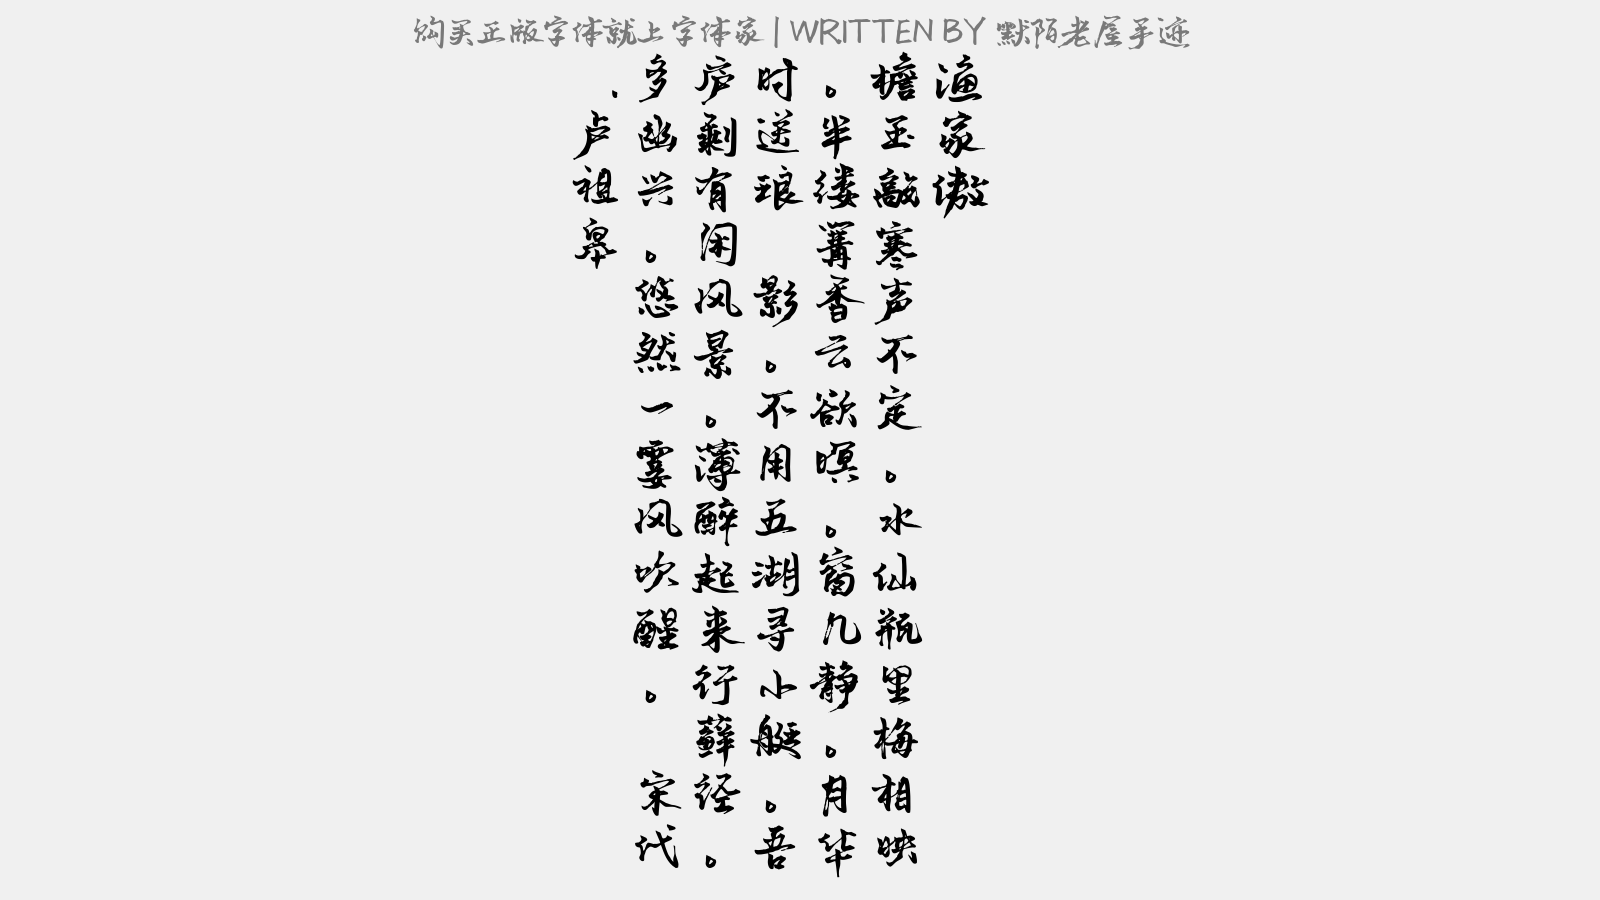 购买正版字体就上字体家 | WRITTEN BY 默陌老屋手迹
渔家傲
檐玉敲寒声不定。水仙瓶里梅相映
。半缕篝香云欲暝。窗几静。月华
时送琅 影。不用五湖寻小艇。吾
庐剩有闲风景。薄醉起来行藓径。
多幽兴。悠然一霎风吹醒。 宋代
·卢祖皋